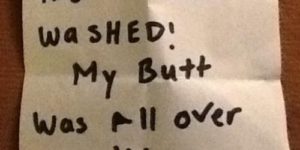 waSHED!
My Butt
was All over